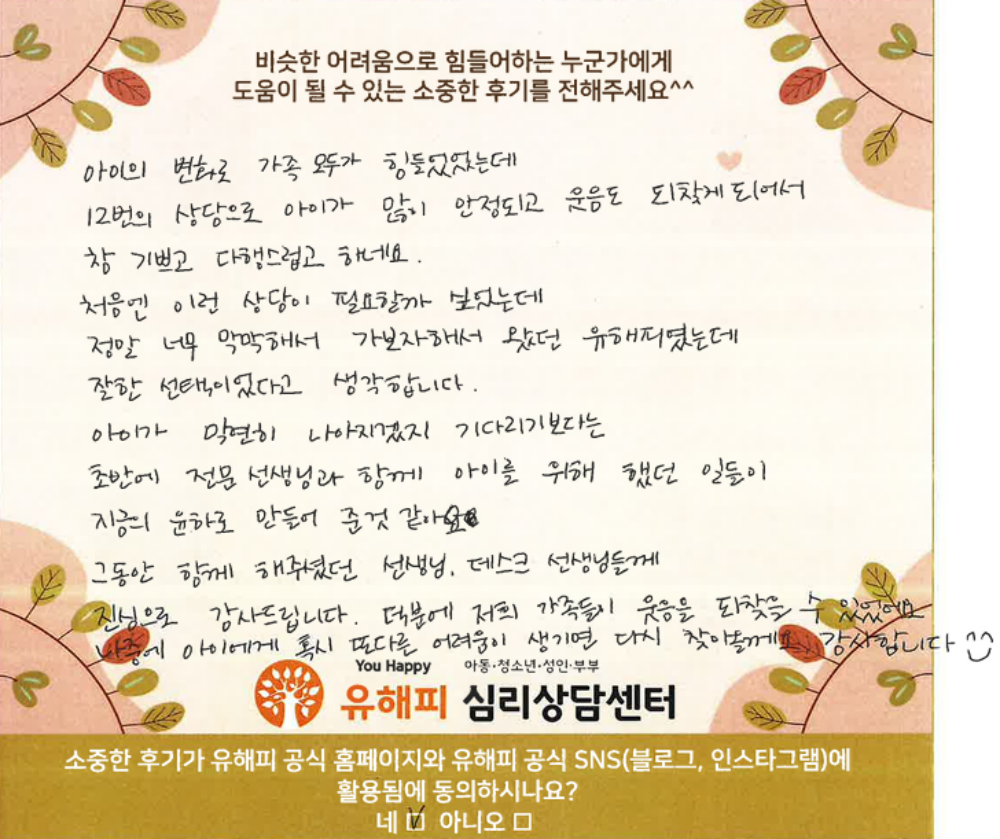 비슷한 어려움으로 힘들어하는 누군가에게
도움이 될 수 있는 소중한 후기를 전해주세요^^
아이의 변화로 가족 모두가 힘들었었는데
12번의 상담으로 아이가 많이 안정되고 웃음도 되찾게 되어서
참 기쁘고 다행스럽고 하네요.
처음엔 이런 상담이 필요할까 싶었는데
정말 너무 막막해서 가보자해서 왔던 유해피였는데
잘한 선택이었다고 생각합니다.
아이가 막연히 나아지겠지 기다리기보다는
초반에 전문 선생님과 함께 아이를 위해 했던 일들이
지금의 윤하로 만들어 준것 같아요
그동안 함께 해주셨던 선생님, 데스크 선생님들께
진심으로 감사드립니다. 덕분에 저희 가족들이 웃음을 되찾을 수 있었어요
나중에 아이에게 혹시 또다른 어려움이 생기면 다시 찾아올께요. 감사합니다
You Happy 아동·청소년·성인·부부
유해피 심리상담센터
소중한 후기가 유해피 공식 홈페이지와 유해피 공식 SNS(블로그, 인스타그램)에
활용됨에 동의하시나요?
네 ☑ 아니오 □